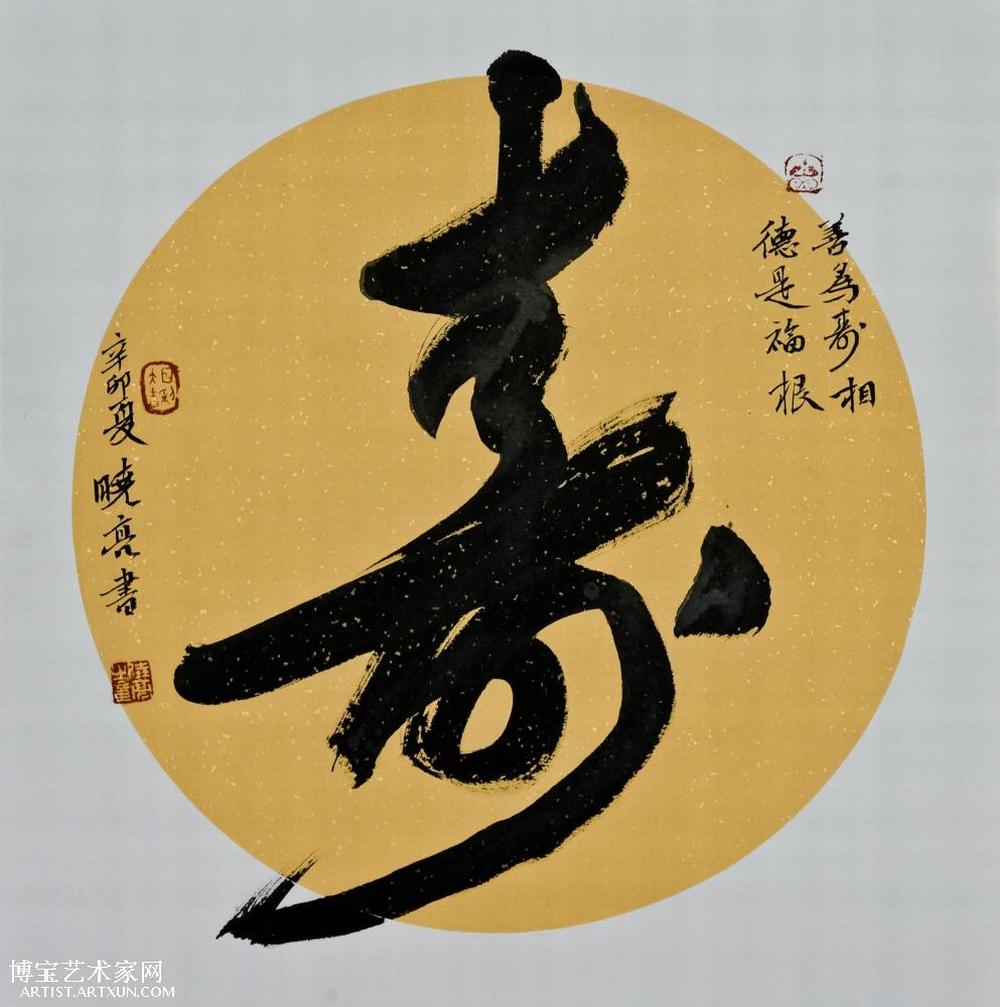 寿
善為壽相
德是福根
辛卯夏
曉亮書
博宝艺术家网
ARTIST.ARTXUN.COM